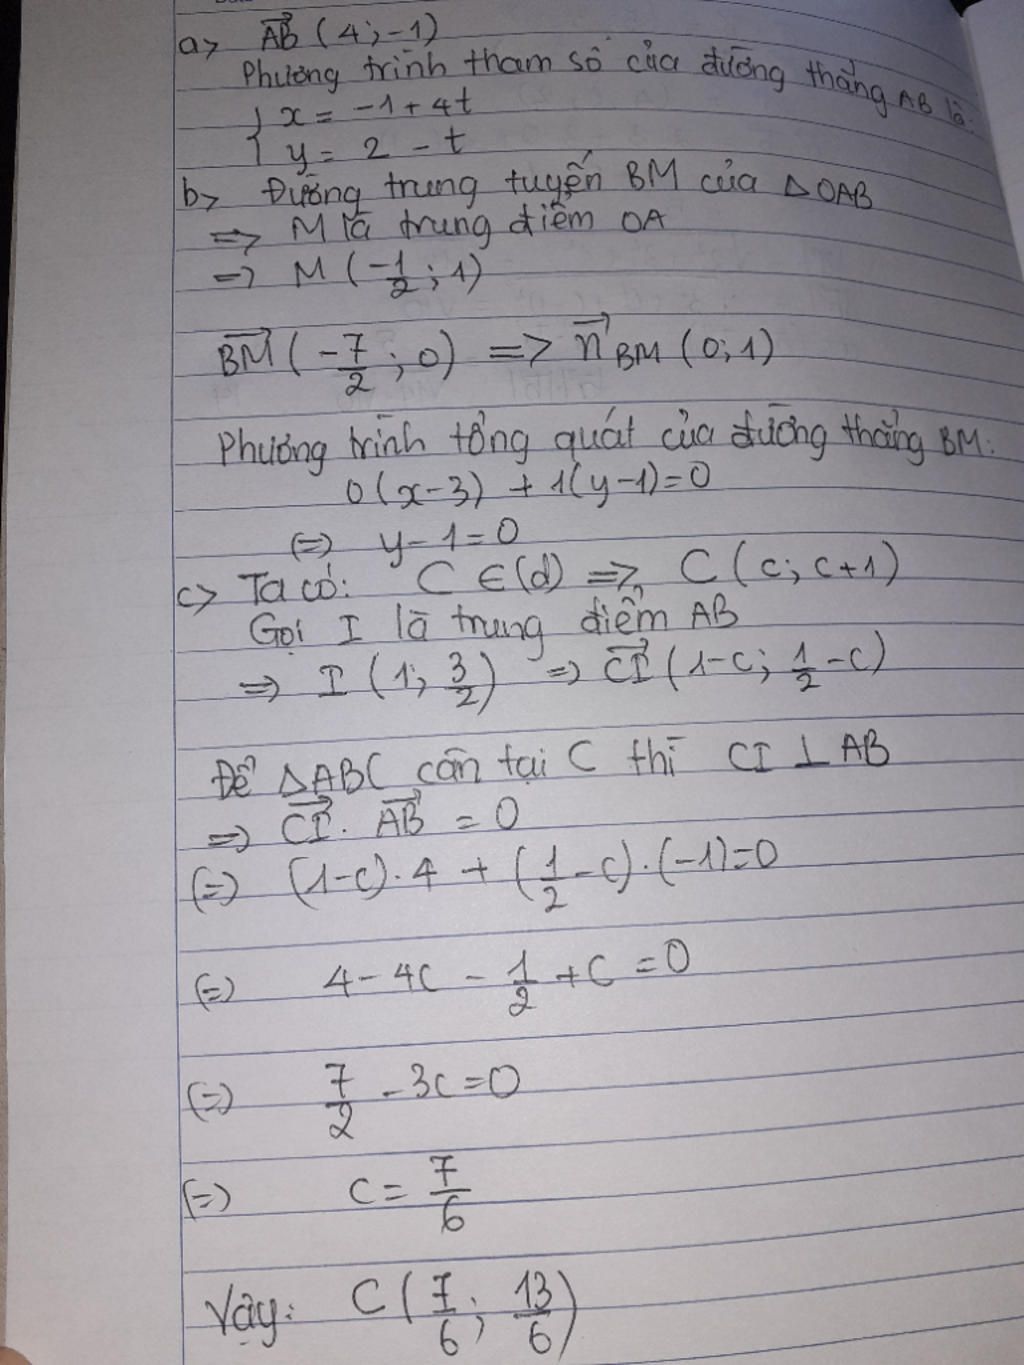 a> AB→ (4;-1)
Phương trình tham số của đường thẳng AB là:
{ x = -1+4t
y = 2 - t
b> Đường trung tuyến BM của ΔOAB
=> M là trung điểm OA
=> M (-1/2; 1)
BM→ (-7/2; 0) => n→ BM (0;1)
Phương trình tổng quát của đường thẳng BM:
0(x-3) + 1(y-1)=0
(=) y-1=0
c> Ta có: C ∈(d) => C (c; c+1)
Gọi I là trung điểm AB
=> I (1; 3/2) => CI→ (1-c; 1/2 -c)
Để ΔABC cân tại C thì CI ⊥ AB
=> CI→ . AB→ = 0
(=) (1-c).4 + (1/2 -c).(-1)=0
(=) 4-4c - 1/2 +c =0
(=) 7/2 -3c=0
(=) c= 7/6
Vậy: C (7/6; 13/6)